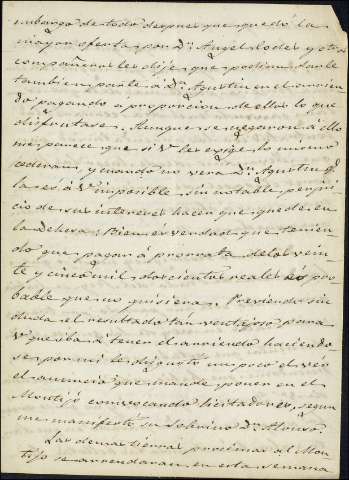 embargo de todo despues que quedó la
mayor oferta, por Dn. Angel Lodes y otros
compañeros les dije que podian darle
tambien parte a Dn. Agustin en el arrien
do pagando a proporcion de ellos lo que
disfrutase. Aunque se negaron á ello
me parece que si V. les exige lo mismo
cederan, y cuando no vera Dn. Agustin q.
la es á V. imposible sin notable perjui
cio de sus intereses hacer que quede en
la dehesa. Bien es verdad que tenien
do que pagar á prorrata de los vein
te y cinco mil doscientos reales es pro
bable que no quisiera. Previendo sin
duda el resultado tan ventajoso para
V. que iba á tener el arriendo haciendo
se por mi le disgustó un poco el ver
el anuncio que mandé poner en el
Montijo convocando licitadores, segun
me manifestó su sobrino Dn. Alonso.
Las demas tierras proximas al Mon
tijo se arrendaran en esta semana